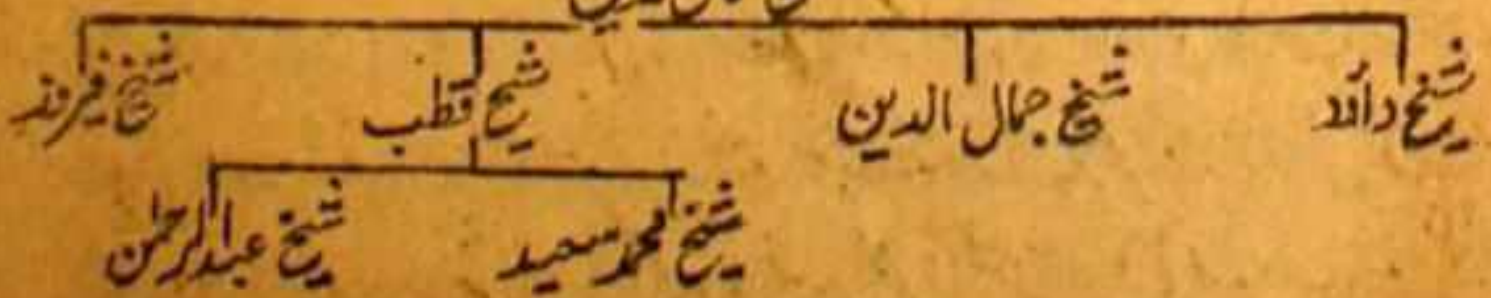 شیخ داؤد شیخ جمال الدین شیخ قطب شیخ فیروز
شیخ محمد سعید شیخ عبدالرحمٰن